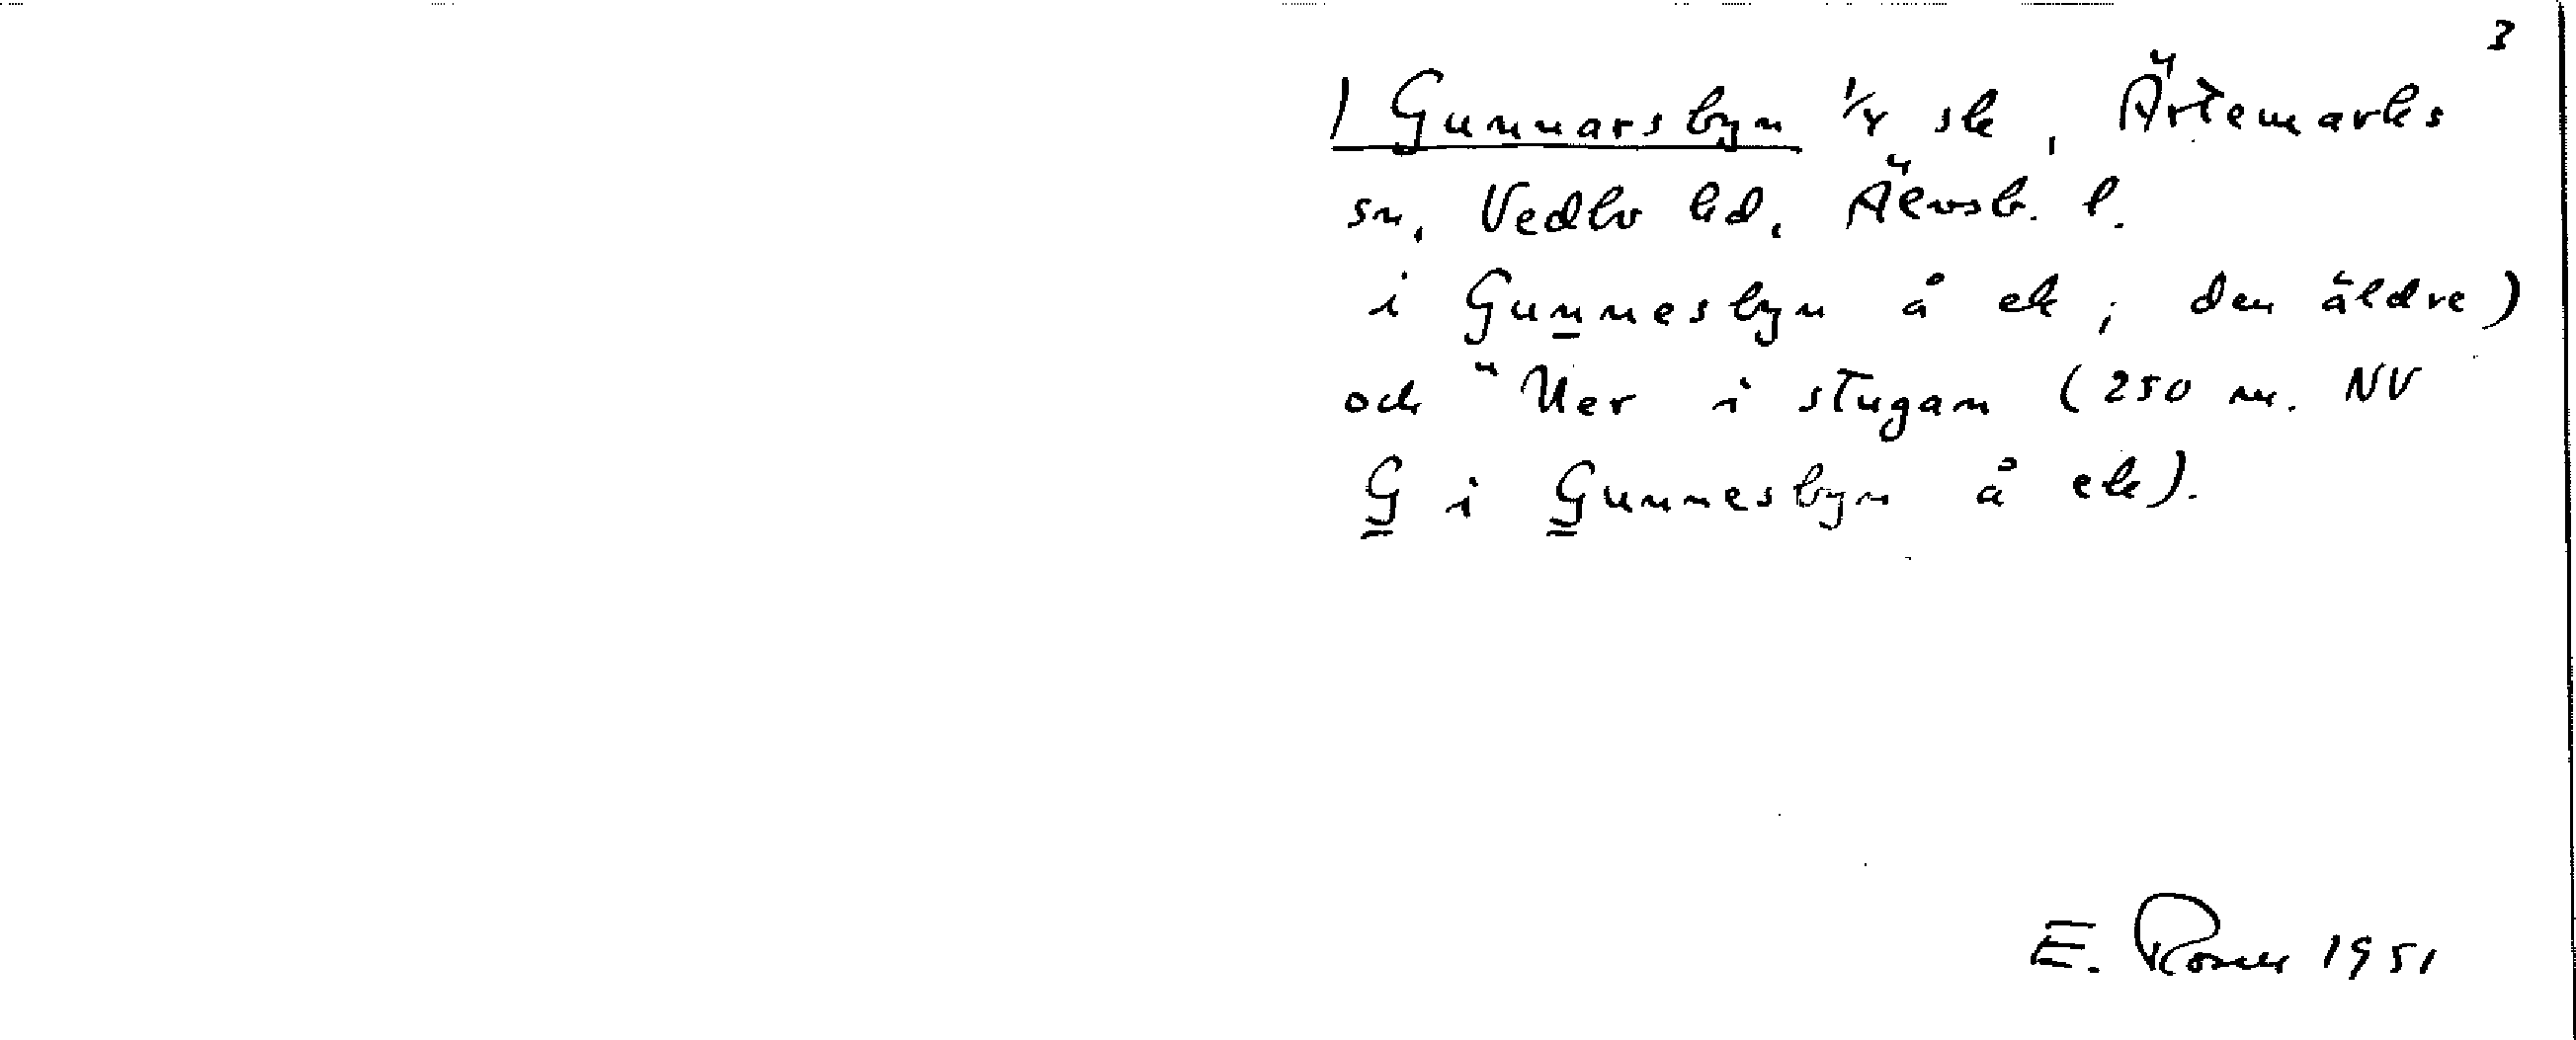 3
) Gunnarsbyn 1/4 sk, Ärtemarks
sn, Vedbo hd, Älvsb. l.
i Gunnesbyn å ek ; den äldre)
och " Uer i stugan (250 m. NV
G i Gunnesbyn å ek).
E. Rosell 1951